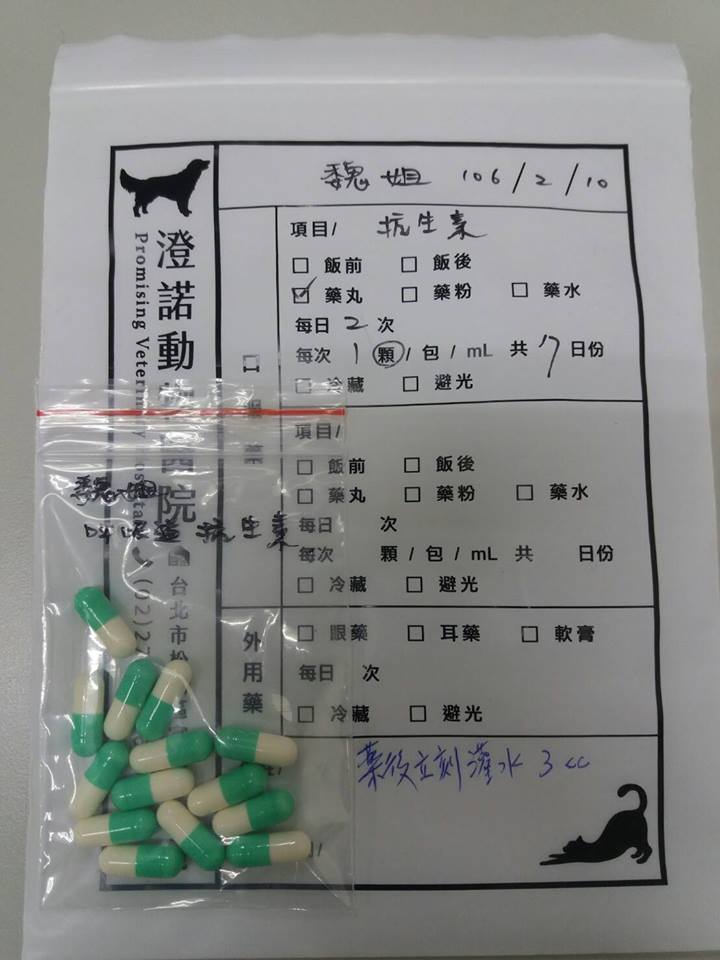 魏姐 106/2/10
澄諾動 醫院
Promising Veterin
(02)27
台北市松
口服藥
項目/ 抗生素
□ 飯前 □ 飯後
☑ 藥丸 □ 藥粉 □ 藥水
每日 2 次
每次 1 顆 / 包 / mL 共 7 日份
□ 冷藏 □ 避光
項目/
□ 飯前 □ 飯後
□ 藥丸 □ 藥粉 □ 藥水
每日 次
每次 顆 / 包 / mL 共 日份
□ 冷藏 □ 避光
外用藥
□ 眼藥 □ 耳藥 □ 軟膏
每日 次
□ 冷藏 □ 避光
藥後立刻灌水 3cc
魏姐
呼吸道抗生素